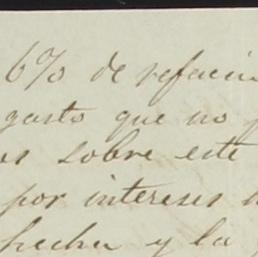 6% de refacci
gasto que no
os sobre este
por intereses
fecha y la